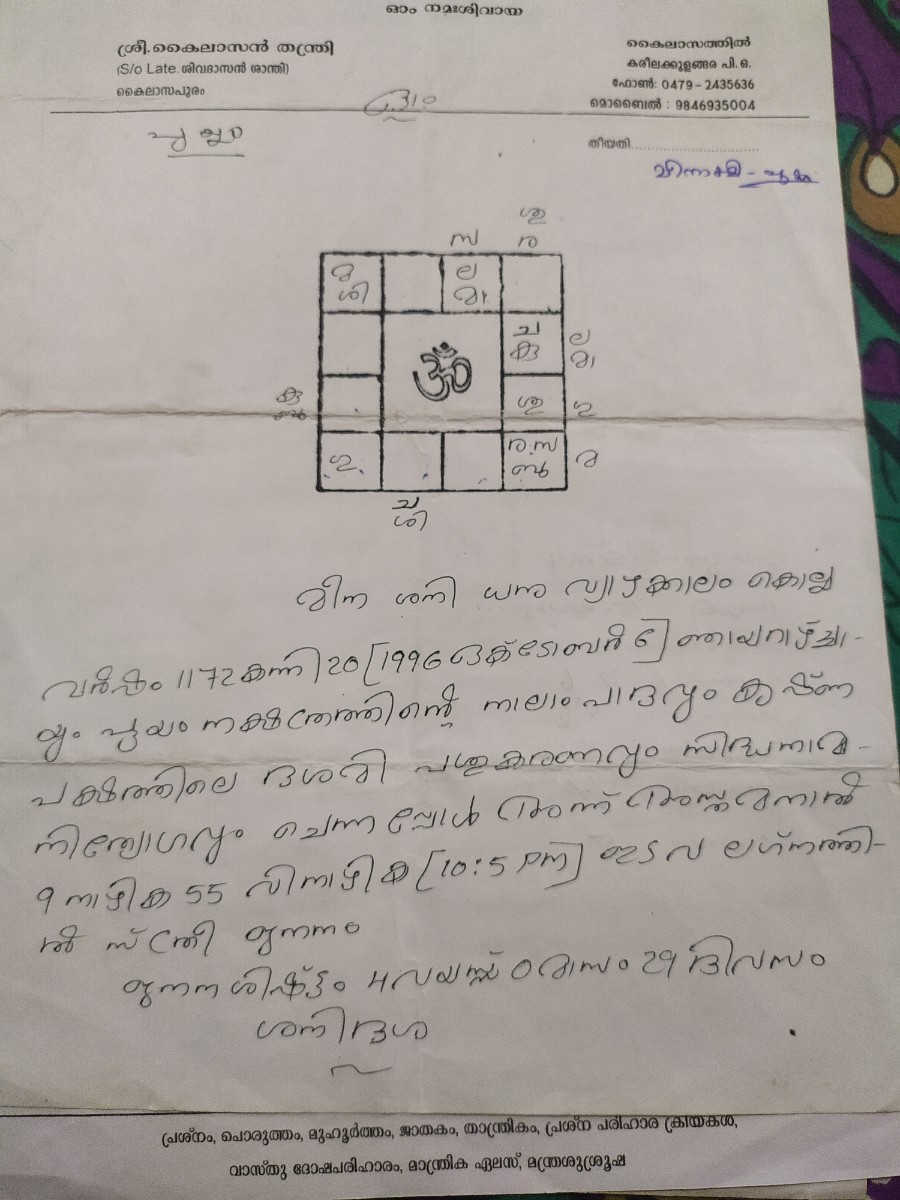 ഓം നമഃശിവായ
ശ്രീ.കൈലാസൻ തന്ത്രി
(S/o Late.ശിവദാസൻ ശാന്തി)
കൈലാസപുരം
കൈലാസത്തിൽ
കരീലക്കുളങ്ങര പി.ഒ.
ഫോൺ: 0479 - 2435636
മൊബൈൽ : 9846935004
തീയതി
മീനാക്ഷി - പൂയം
പൂയം
ശു
സ ര
മ ല
ശി മാ
ച ല
കു മാ
ॐ
കു
ശു ഗു
ഗു ര.സ മ
ബു
ച
ശി
മീന ശനി ധനു വ്യാഴക്കാലം കൊല്ല
വർഷം 1172 കന്നി 20 [1996 ഒക്ടോബർ 6] ഞായറാഴ്ചാ-
യും പൂയം നക്ഷത്രത്തിന്റെ നാലാം പാദവും കൃഷ്ണ
പക്ഷത്തിലെ ദശമി പശുകരണവും സിദ്ധനാമ-
നിത്യോഗവും ചെന്ന പ്പോൾ അന്ന് അസ്തമനാൽ
9 നാഴിക 55 വിനാഴിക [10:5 PM] ഇടവ ലഗ്നത്തി-
ൽ സ്ത്രീ ജനനം
ജനന ശിഷ്ട്ടം 4 വയസ്സ് 0 മാസം 29 ദിവസം
ശനി ദശ
പ്രശ്നം, പൊരുത്തം, മുഹൂർത്തം, ജാതകം, താന്ത്രികം, പ്രശ്ന പരിഹാര ക്രിയകൾ,
വാസ്തു ദോഷപരിഹാരം, മാന്ത്രിക ഏലസ്, മന്ത്രശുശ്രൂഷ